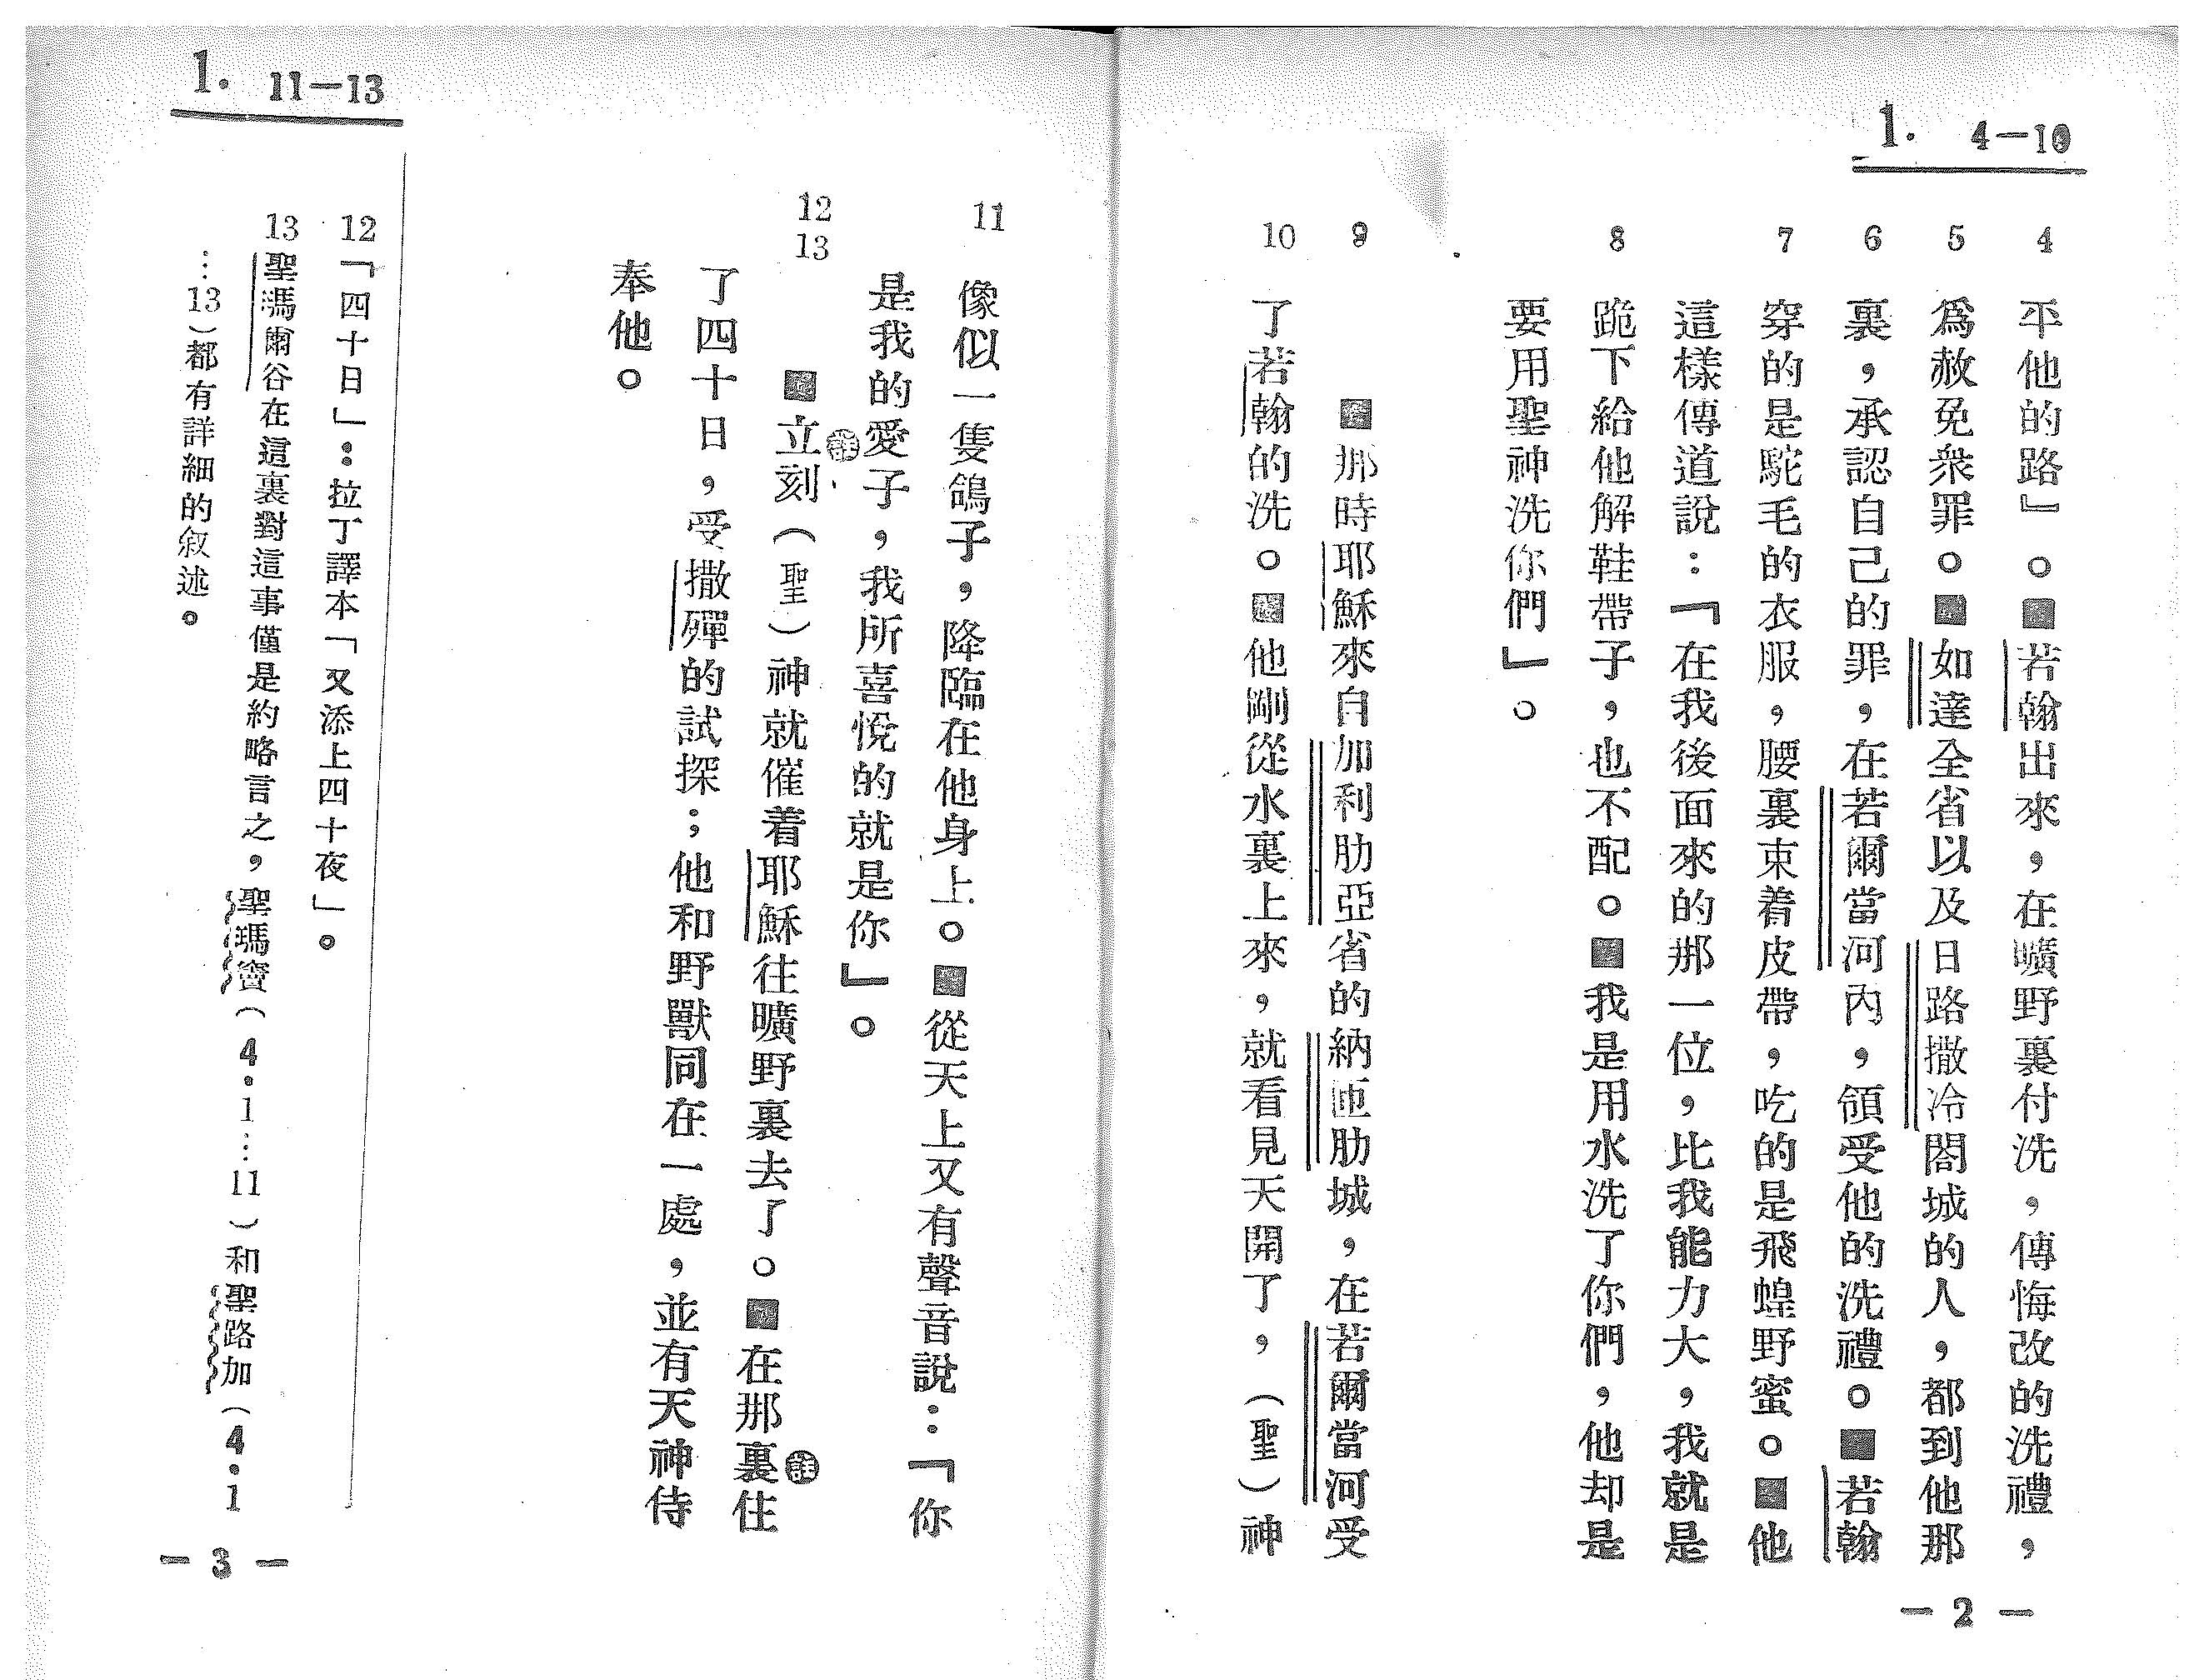 1. 4—10
4 5 6 7 8 9 10
平他的路』。■若翰出來，在曠野裏付洗，傳悔改的洗禮，
爲赦免衆罪。■如達全省以及日路撒冷閤城的人，都到他那
裏，承認自己的罪，在若爾當河內，領受他的洗禮。■若翰
穿的是駝毛的衣服，腰裏束着皮帶，吃的是飛蝗野蜜。■他
這樣傳道說：『在我後面來的那一位，比我能力大，我就是
跪下給他解鞋帶子，也不配。■我是用水洗了你們，他却是
要用聖神洗你們』。
■那時耶穌來自加利肋亞省的納匝肋城，在若爾當河受
了若翰的洗。■他剛從水裏上來，就看見天開了，（聖）神
— 2 —
1. 11—13
11 12 13
像似一隻鴿子，降臨在他身上。■從天上又有聲音說：『你
是我的愛子，我所喜悅的就是你』。
■立刻（聖）神就催着耶穌往曠野裏去了。■在那裏住
註
註
了四十日，受撒殫的試探；他和野獸同在一處，並有天神侍
奉他。
12 「四十日」：拉丁譯本「又添上四十夜」。
13 聖瑪爾谷在這裏對這事僅是約略言之，聖瑪竇（4·1…11）和聖路加（4·1
…13）都有詳細的叙述。
— 3 —